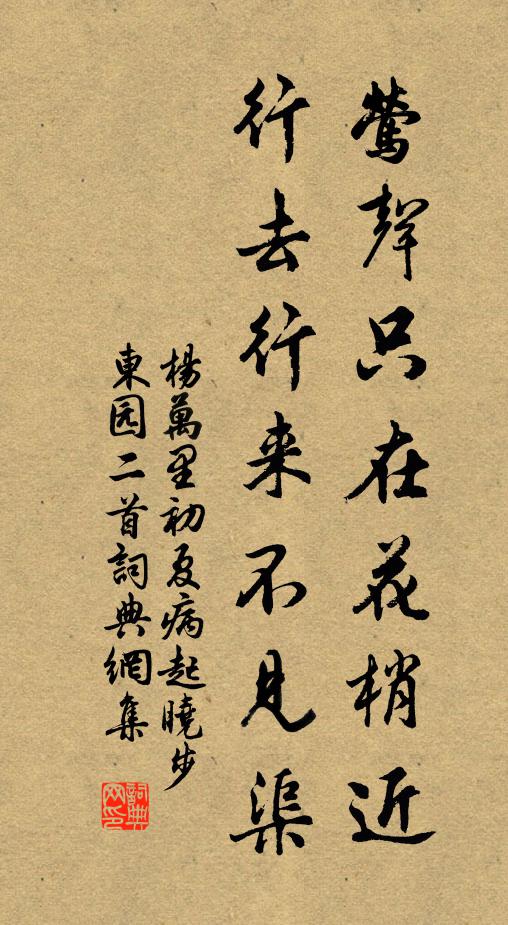 鶯聲只在花梢近
行去行来不見渠
楊萬里初夏病起曉步
東园二首詞典網集
詞典
网印